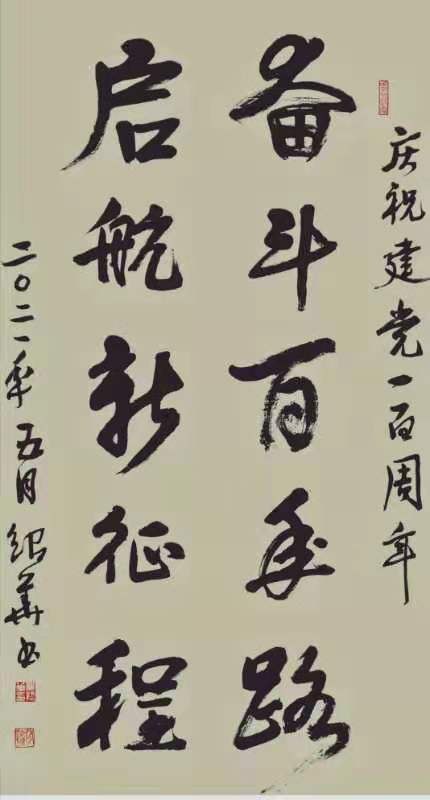 庆祝建党一百周年
奋斗百年路
启航新征程
二〇二一年五月绍華书